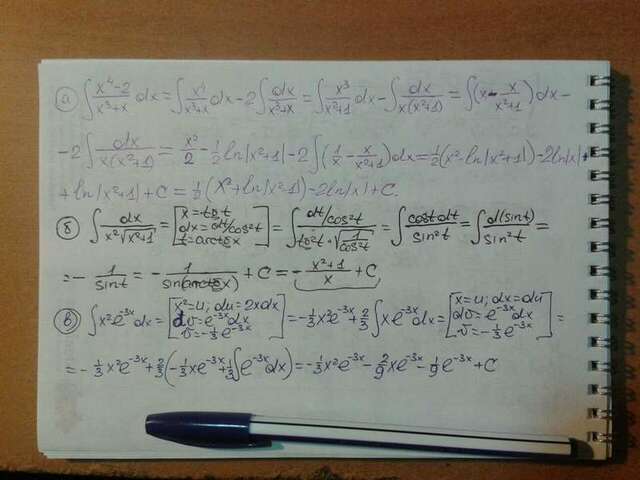 а) ∫ x⁴-2/x³+x dx = ∫ x⁴/x³+x dx - 2∫ dx/x³+x = ∫ x³/x²+1 dx - ∫ dx/x(x²+1) = ∫(x - x/x²+1)dx -
- 2∫ dx/x(x²+1) = x²/2 - 1/2 ln|x²+1| - 2∫(1/x - x/x²+1)dx = 1/2(x² - ln|x²+1|) - 2ln|x| +
+ ln|x²+1| + C = 1/2(x² + ln|x²+1|) - 2ln|x| + C.
б) ∫ dx/x²√x²+1 = [x = tg t; dx = dt/cos²t; t = arctg x] = ∫ dt/cos²t / tg²t · √1/cos²t = ∫ cost dt/sin²t = ∫ d(sint)/sin²t =
= - 1/sint = - 1/sin(arctg x) + C = - x²+1/x + C
в) ∫ x²e^-3x dx = [x² = u; du = 2xdx; dv = e^-3x dx; v = -1/3 e^-3x] = -1/3 x²e^-3x + 2/3 ∫ xe^-3x dx = [x = u; dx = du; dv = e^-3x dx; v = -1/3 e^-3x] =
= - 1/3 x²e^-3x + 2/3(-1/3 xe^-3x + 1/3 ∫ e^-3x dx) = -1/3 x²e^-3x - 2/9 xe^-3x - 1/9 e^-3x + C